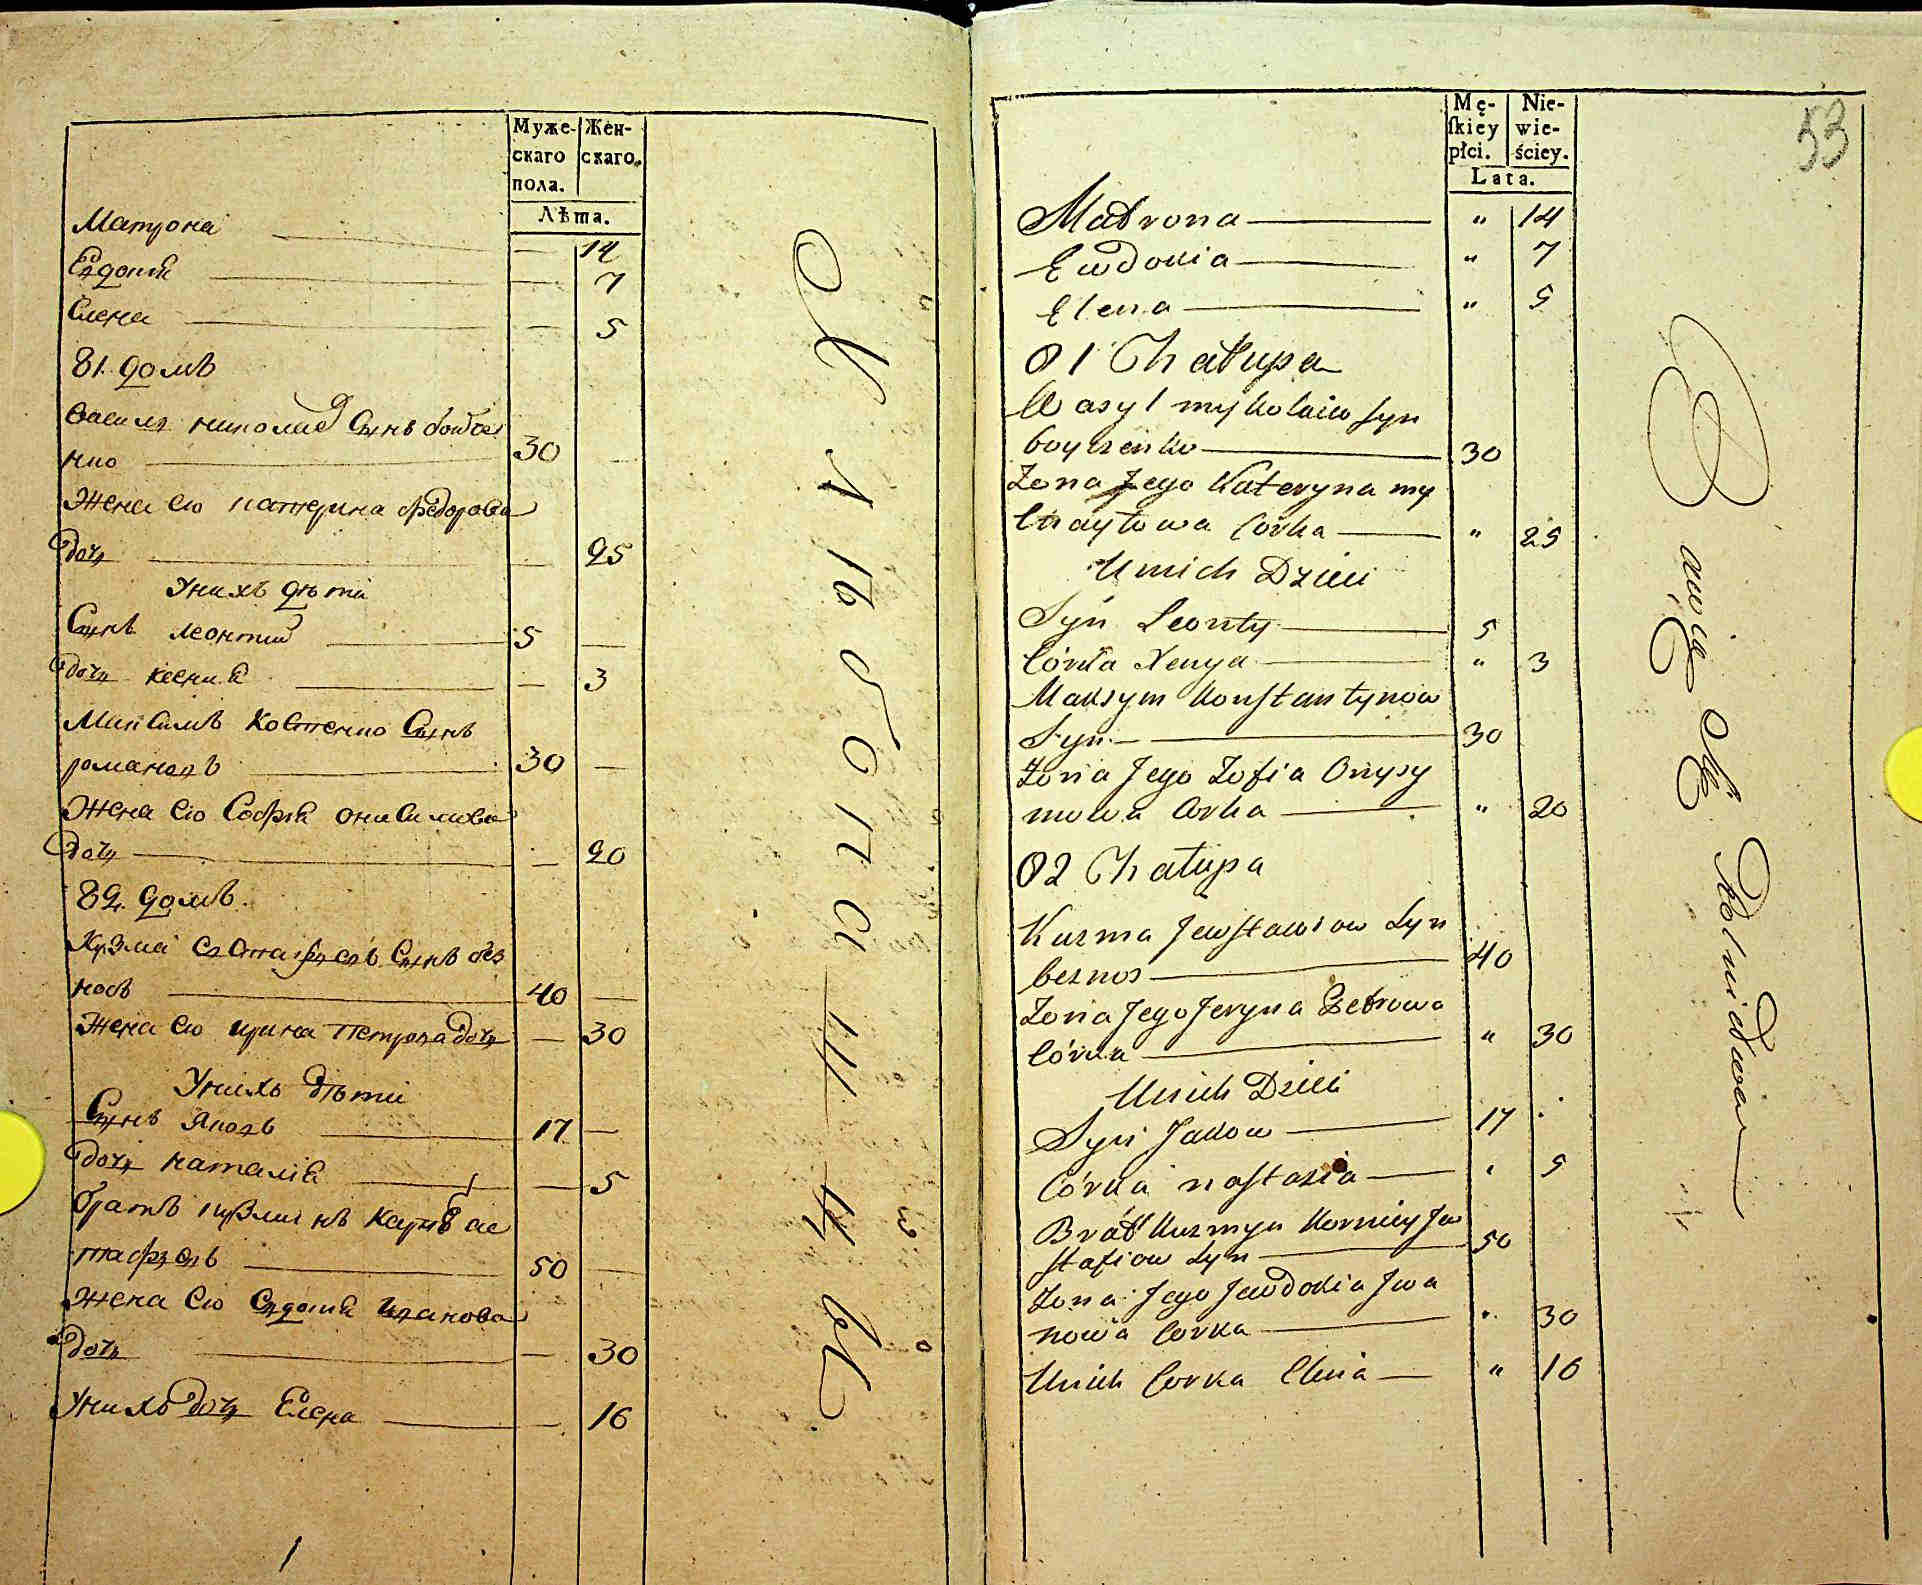 Муже-
скаго
пола.
Жен-
скаго.
Лѣта.
Матрона 14
Евдокія 7
Елена 5
81. домъ
Василь николаев Сынъ бойче
нко 30
Жена его катерина федорова
дочь 25
У нихъ дѣти
Сынъ леонтий 5
дочь ксения 3
Максимъ Костенко Сынъ
романовъ 30
Жена его Софія онисимова
дочь 20
82. домъ.
Кузма евстафиевъ Сынъ без
носъ 40
Жена его ирина петрова дочь 30
У нихъ дѣти
Сынъ Яковъ 17
дочь наталія 5
братъ кузминъ карнѣй ев
стафиевъ 50
Жена его Евдокія Иванова
дочь 30
У нихъ дочь Елена 16
53
Mę-
ſkiey
płci.
Nie-
wie-
ściey.
Lata.
Matrona " 14
Ewdokia " 7
Elena " 5
81 Chałupa
Wasyl mykolaiw syn
boyczenko 30
Żona Jego Kateryna my
chayłowa Corka " 25
U nich Dzieci
Syn Leonty 5
Córka Xenya " 3
Maksym Konstantynow
Syn 30
Żona Jego Zofia Onysy
mowa Corka " 20
82 Chałupa
Kuzma Jewstawiow Syn
beznos 40
Żona Jego Jeryna Petrowa
Córka " 30
U nich Dzieci
Syn Jakow 17
Córka nastazia 5
Brat Kuzmyn Korniey Jew
stafiow Syn 50
Żona Jego Jewdokia Iwa
nowa Corka 30
U nich Corka Elena " 16